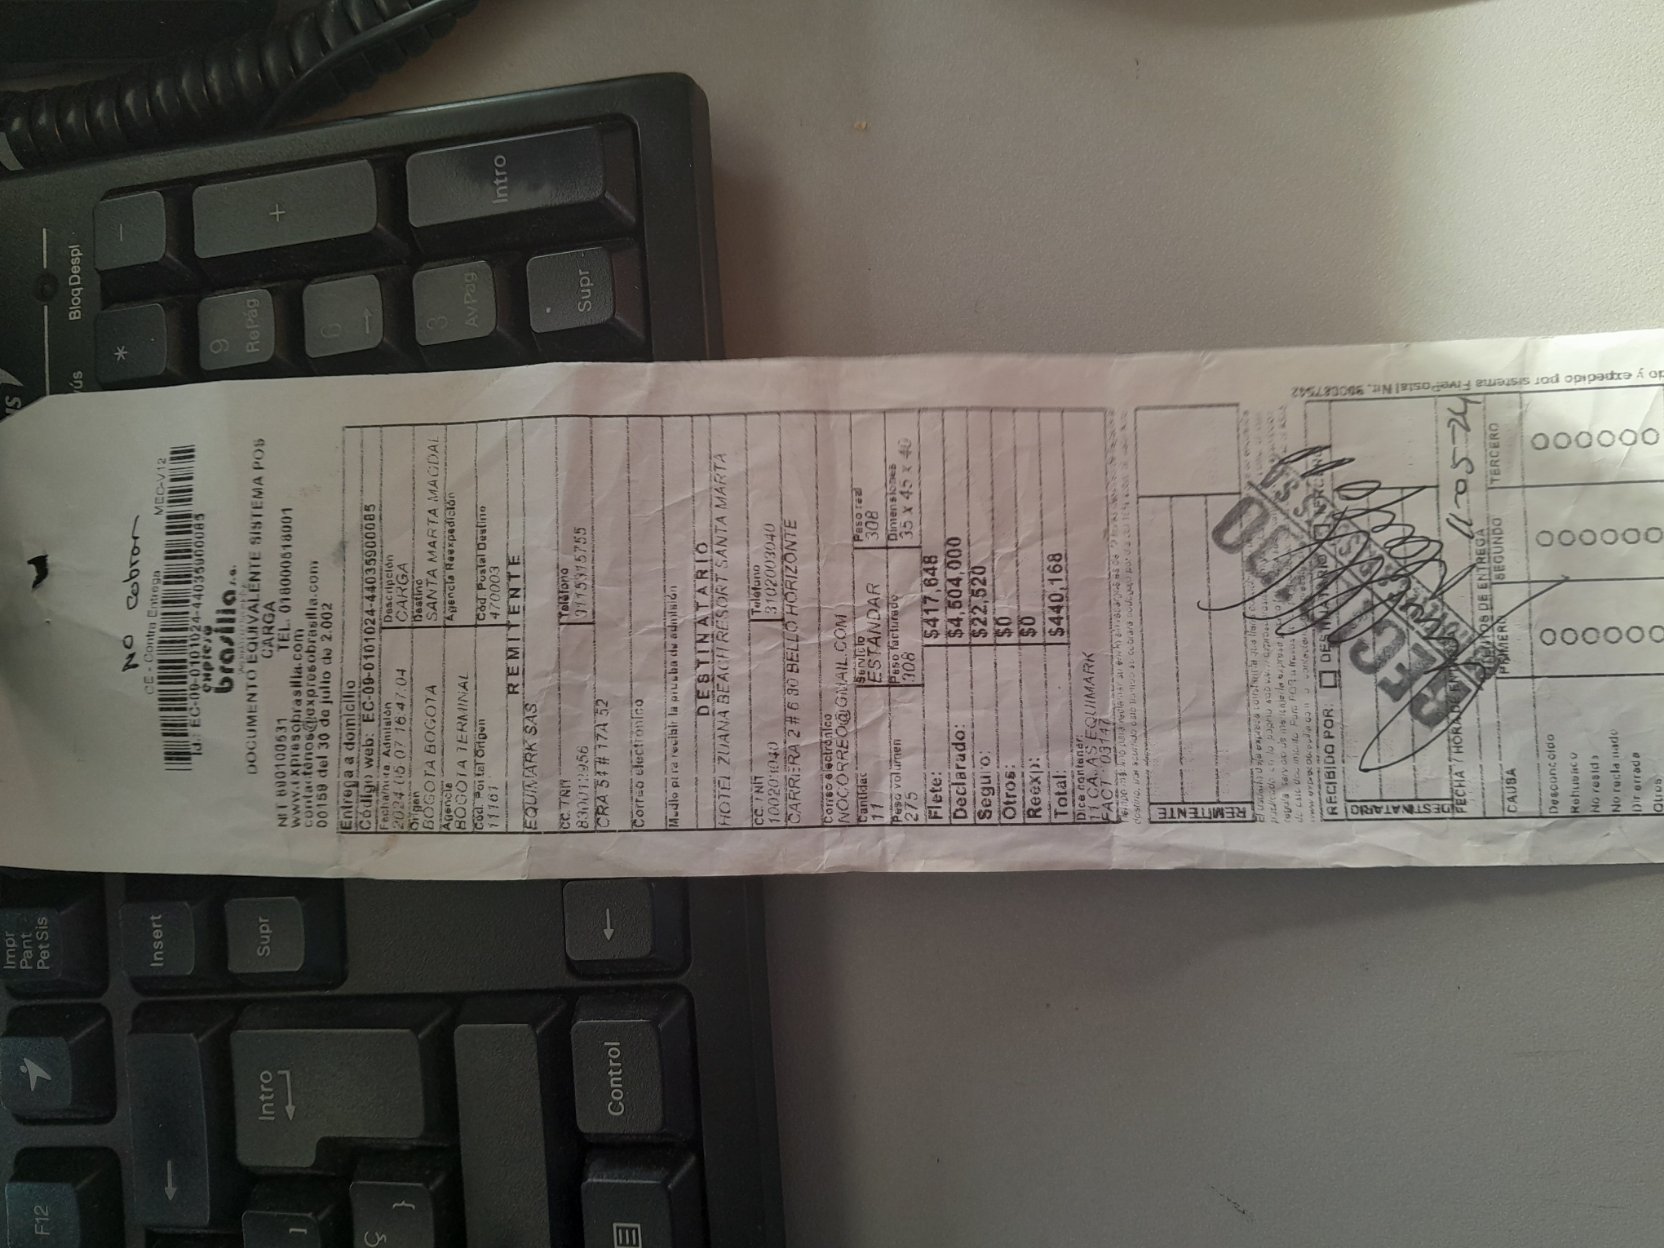 No cobrar
CE - Contra Entrega MEC-V12
Id.: EC-09-0101024-44035900085
expreso
brasilia s.a.
DOCUMENTO EQUIVALENTE SISTEMA POS
CARGA
NIT 890100531 TEL. 018000518001
www.expresobrasilia.com
contactenos@expresobrasilia.com
00159 del 30 de julio de 2.002
Entrega a domicilio
Código web: EC-09-0101024-4403590085
Fecha/hora Admisión Descripción
2024-05-07 16:47:04 CARGA
Origen Destino
BOGOTA BOGOTA SANTA MARTA MAGDAL
Agencia Agencia Reexpedición
BOGOTA TERMINAL
Cód. Postal Origen Cód. Postal Destino
11161 470003
REMITENTE
EQUIMARK SAS
CC / Nit Teléfono
CRA 54 # 17A 52
Correo electrónico
Medio para recibir la prueba de admisión
DESTINATARIO
HOTEL ZUANA BEACH RESORT SANTA MARTA
CC. / Nit Teléfono
100201040 3102003040
CARRERA 2 # 6 80 BELLO HORIZONTE
Correo electrónico
NOCORREO@GMAIL.COM
Cantidad Servicio Peso real
11 ESTANDAR 308
Peso volumen Peso facturado Dimensiones
275 308 35 x 45 x 40
Flete: $417,648
Declarado: $4,504,000
Seguro: $22,520
Otros: $0
Reexp: $0
Total: $440,168
Dice contener:
11 CAJAS EQUIMARK
REMITENTE
RECIBIDO POR
DESTINATARIO
RECIBIDO
11-05-24
FECHA / HORA DE ENTREGA
INTENTOS DE ENTREGA
CAUSA PRIMERO SEGUNDO TERCERO
Desconocido
Rehusado
No reside
No reclamado
Dir errada
Otros
do y expedido por sistema FivePostal Nit. 900087542
BloqDespl
ús
-
+
Intro
*
9
RePág
6
→
3
AvPág
.
Supr
Impr
Pant
PetSis
Insert
Supr
←
←
Intro
Control
F12
Ç }